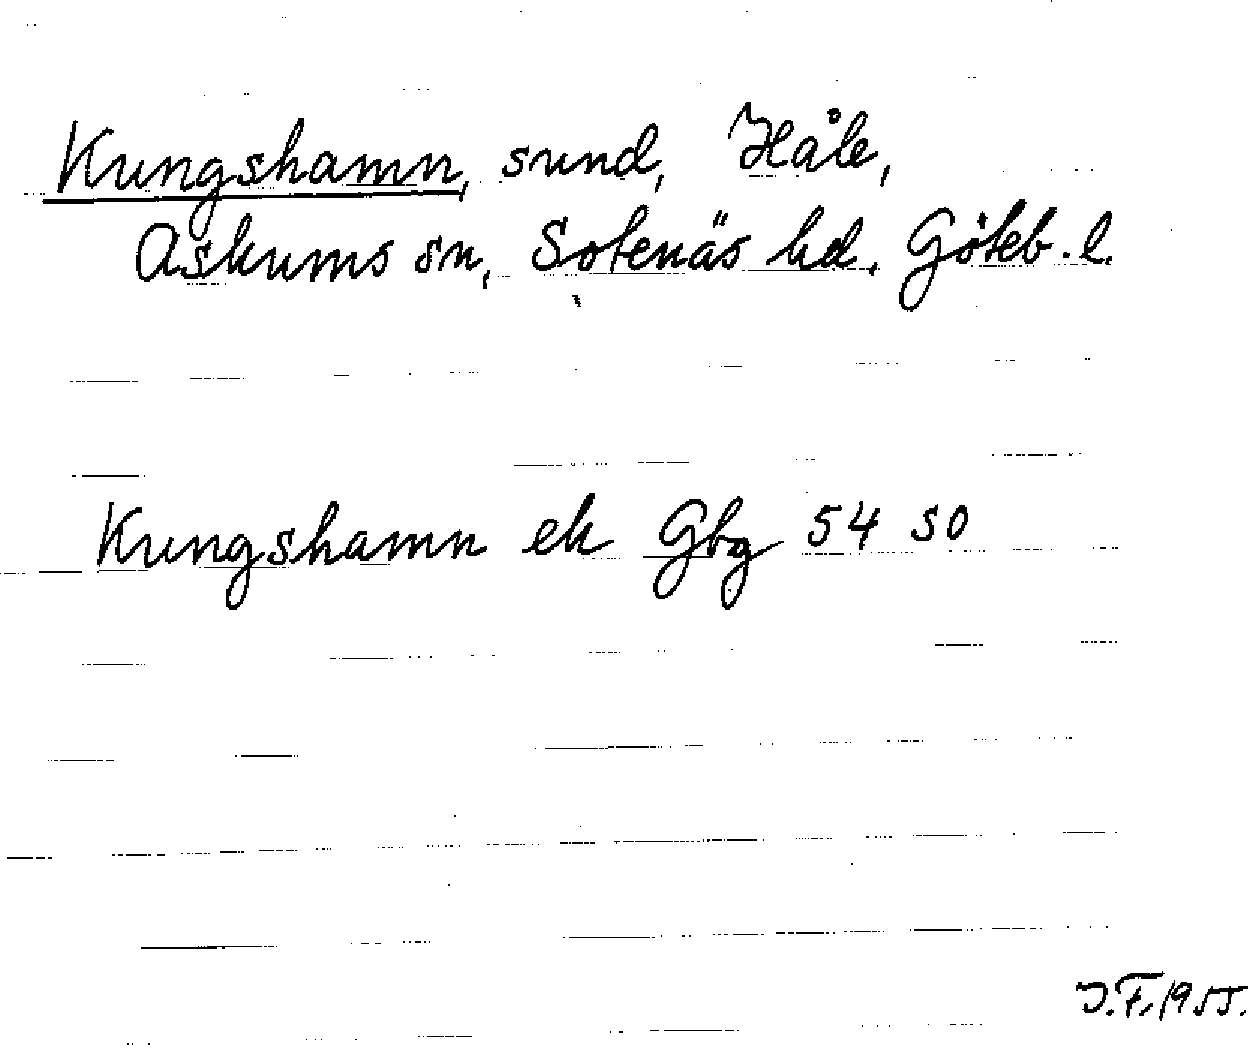 Kungshamn, sund, Håle,
Askums sn, Sotenäs hd, Göteb. l.
Kungshamn ek Gbg 54 SO
J.F. 1955.